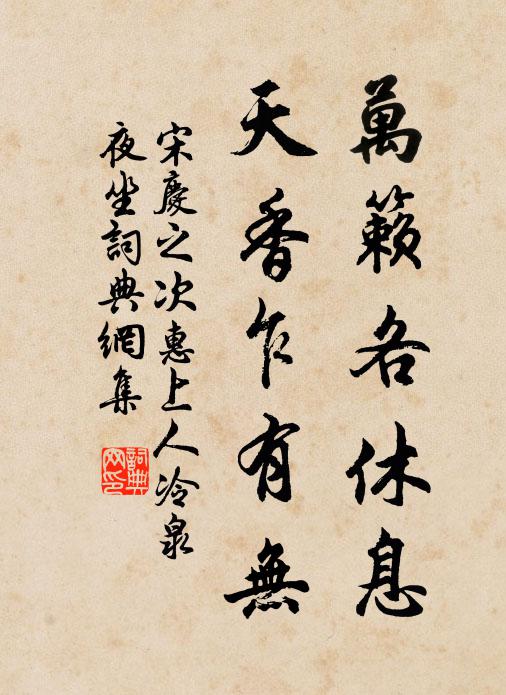 萬籟各休息
天香乍有無
宋慶之次惠上人冷泉
夜坐詞典網集
詞典
网印